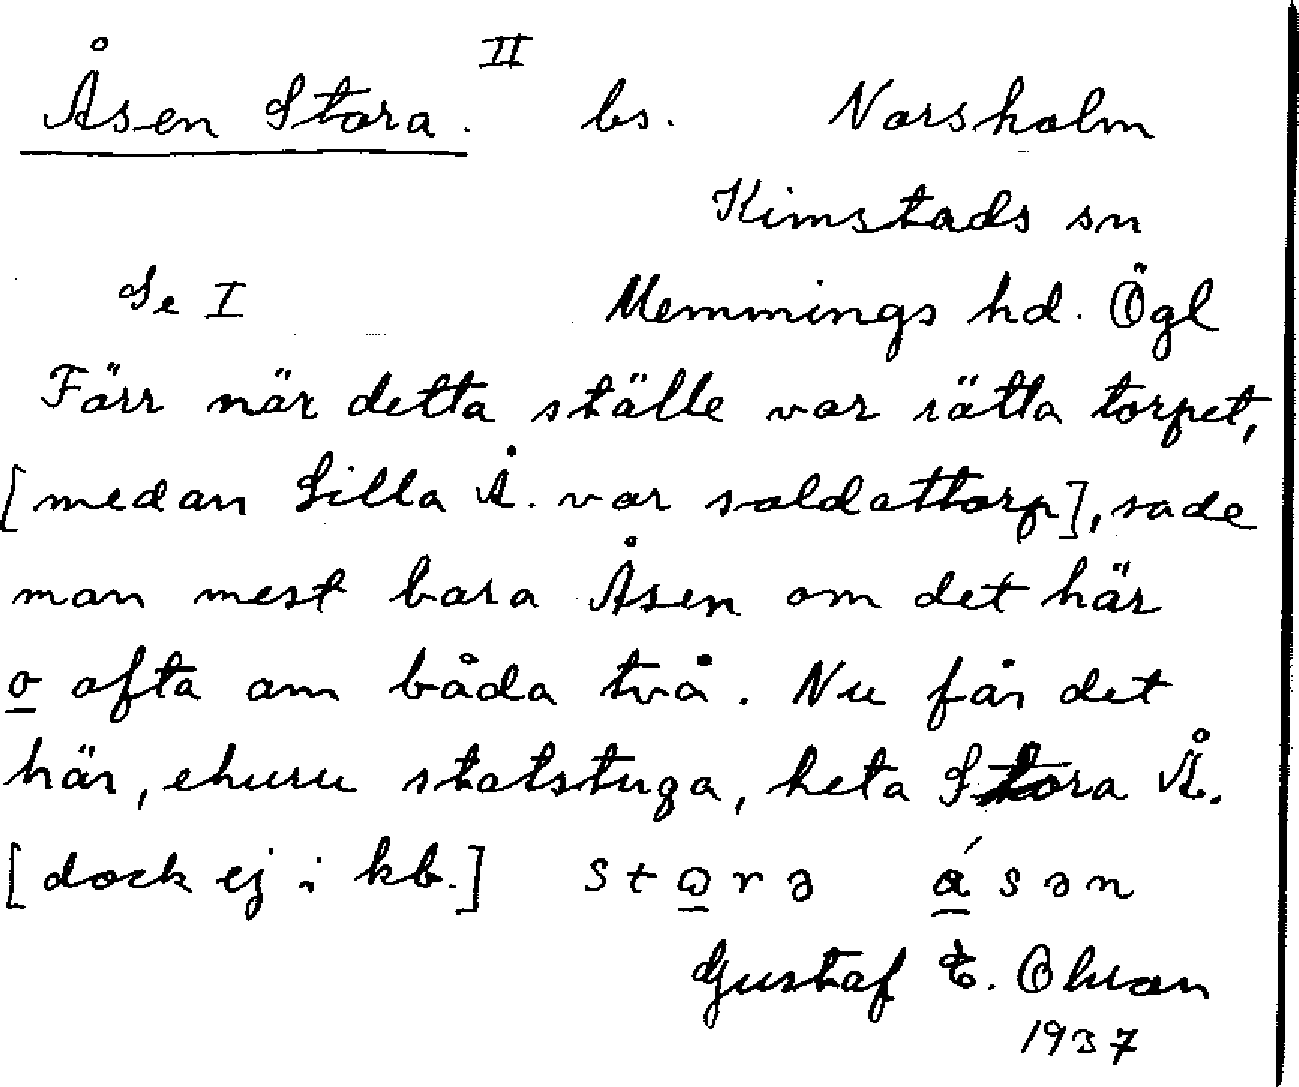 Åsen Stora. II bs. Norsholm
Kimstads sn
Se I Memmings hd. Ögl
Förr när detta ställe var rätta torpet,
[medan Lilla Å. var soldattorp], sade
man mest bara Åsen om det här
o ofta om båda två. Nu får det
här, ehuru statstuga, heta Stora Å.
[dock ej i kb.] stǫrə ásən
Gustaf E.
1937